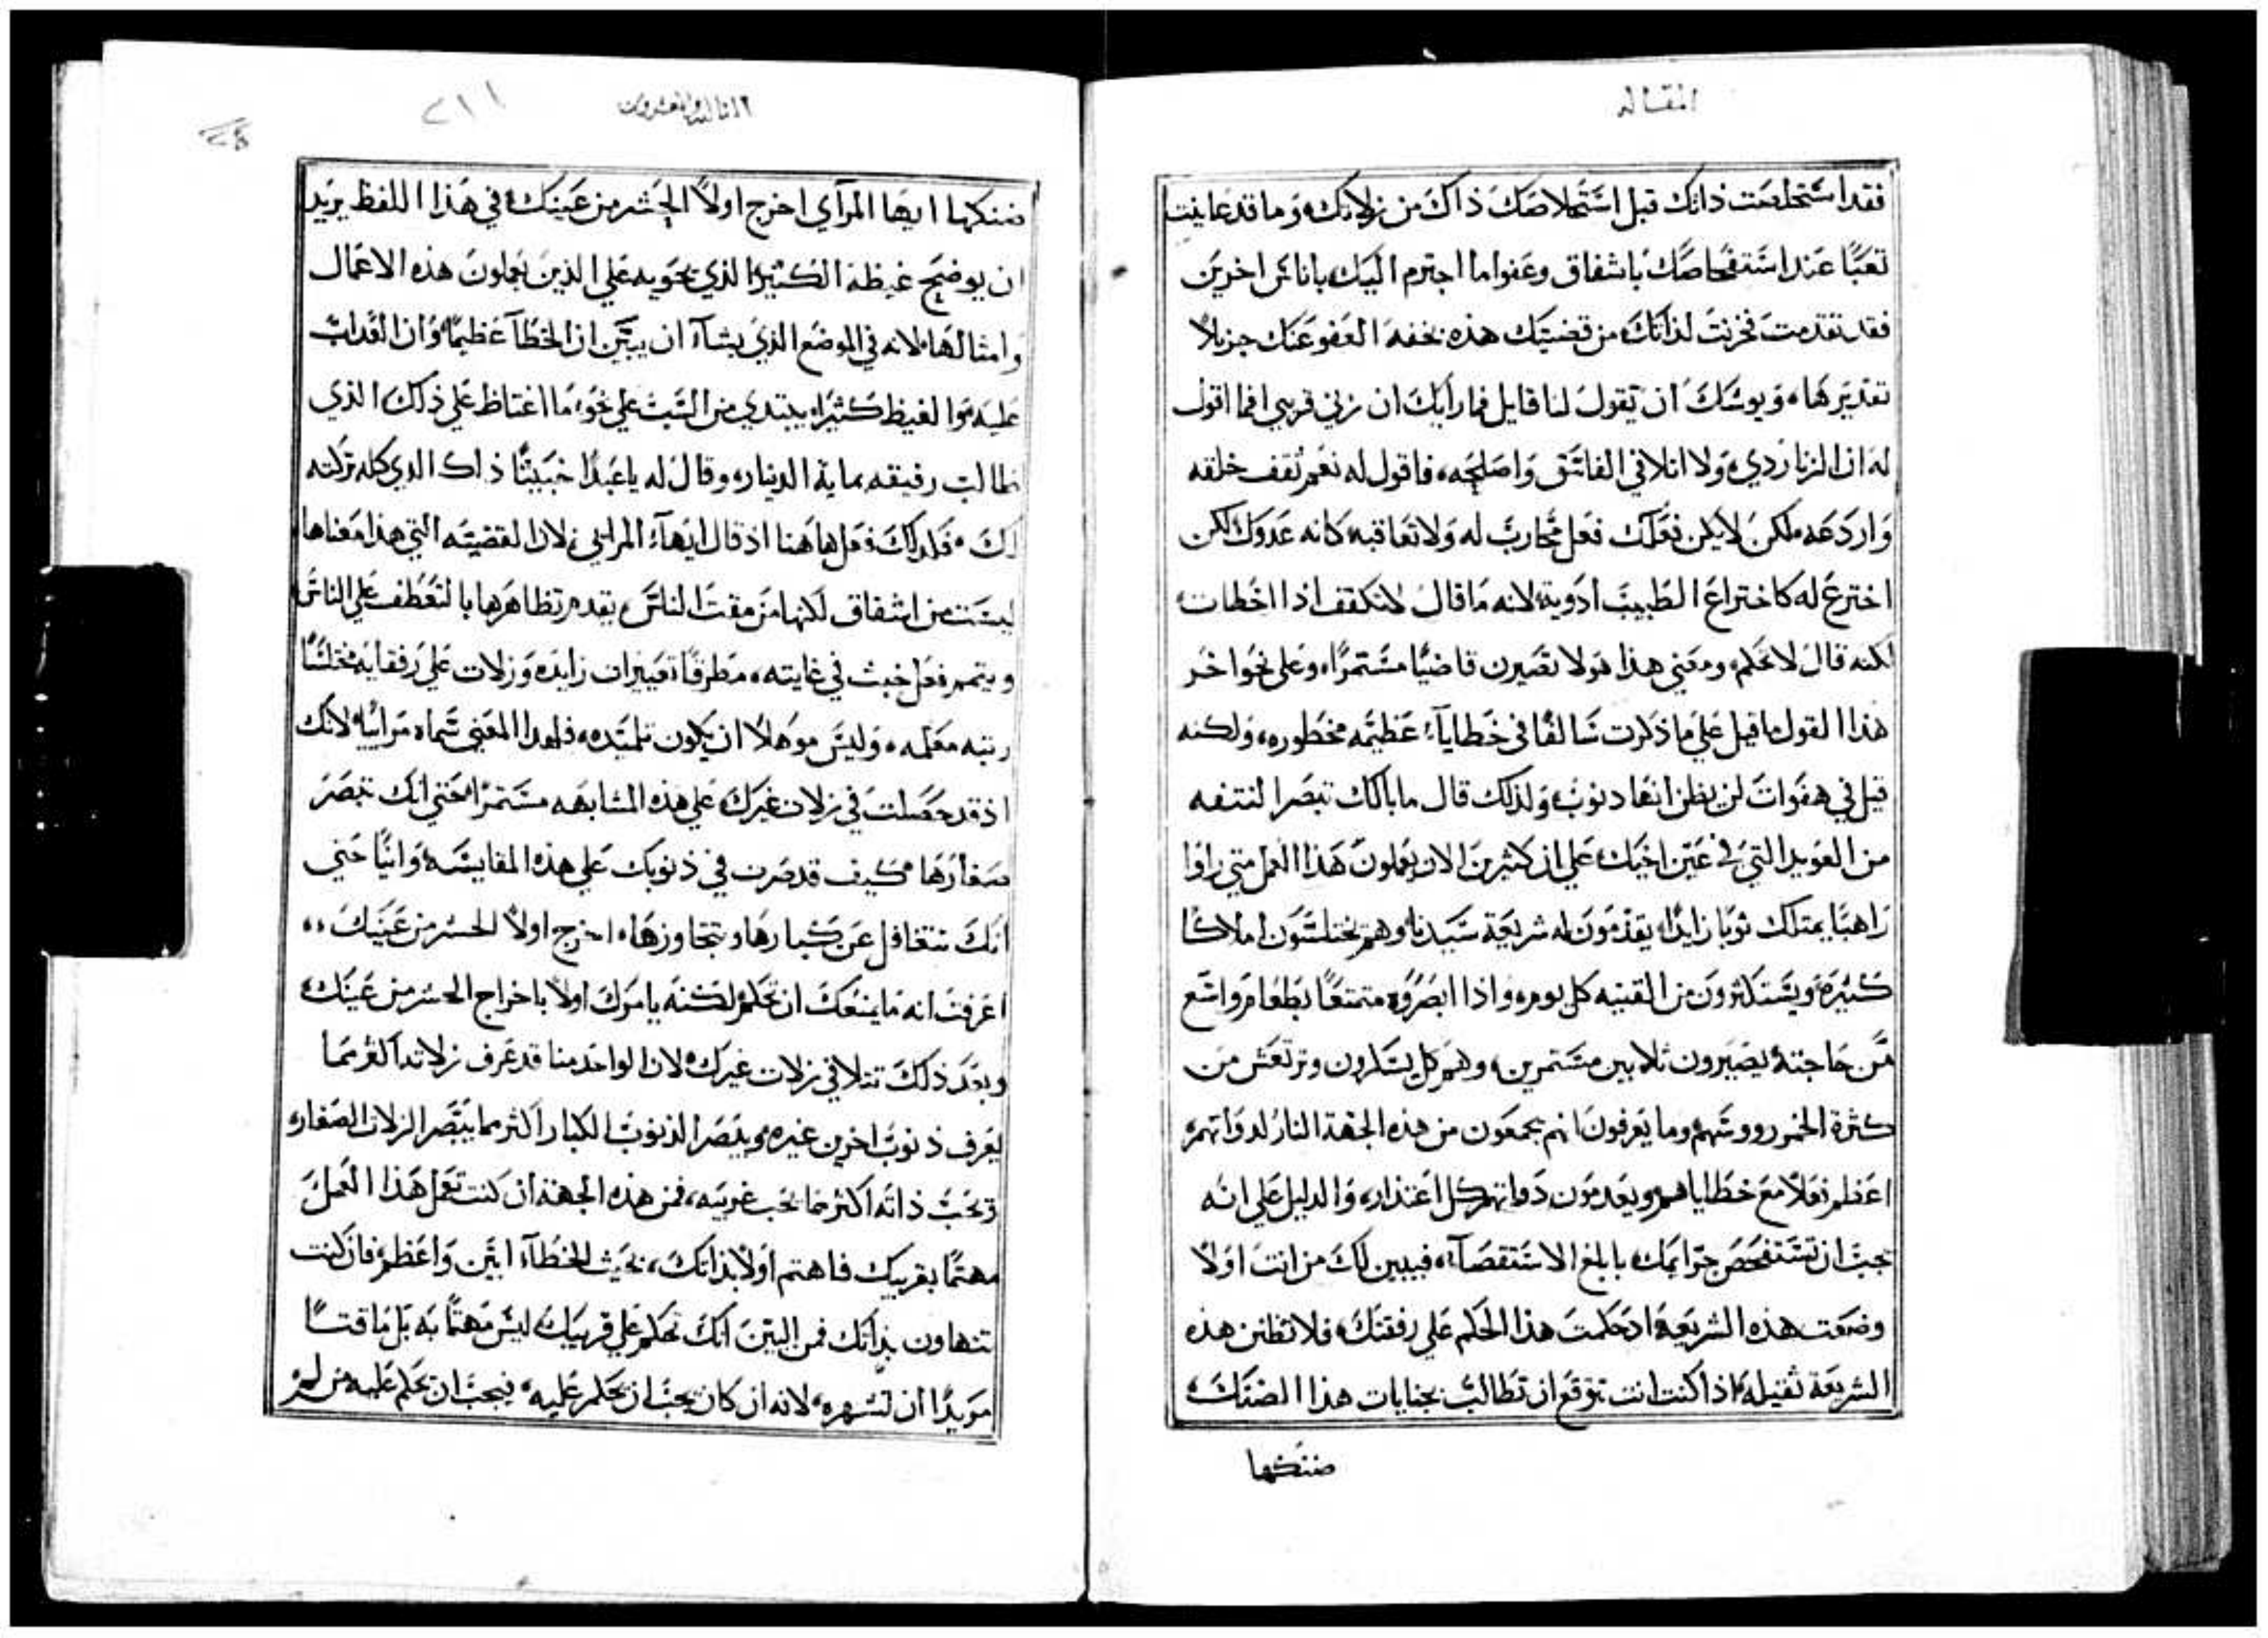 المقاله
فقد استخلصت ذاتك قبل استخلاصك ذاك من زلاتك، وما قد عاينت
تعبًا عند استفحاصك باشفاق وعفوا ما اجترم اليك باناس اخرين
فقد تقدمت فخزنت لذاتك من قضيتك هذه بخفه العفو عنك جزيلا
تقديرها، ويوشك ان يقول لنا قايل فما رايك ان زني قريبي افما اقول
له ان الزنا ردي، ولا اتلافي الفاسق واصلحه، فاقول له نعم ثقف خلقه
واردعه، لكن لا يكن فعلك فعل محارب له ولا تعاقبه كانه عدوك لكن
اخترع له كاختراع الطبيب ادوية، لانه ما قال لا تكفف اذا اخطات،
لكنه قال لا تحكم، ومعني هذا هو لا تصيرن قاضيًا مستمرًا، وعلي نحو اخر
هذا القول ما قيل علي ما ذكرت سالفًا في خطايا عظيمه محظوره، ولكنه
قيل في هفوات لن يظن انها دنوب، ولذلك قال ما بالك تبصر النتفه
من العويد التي في عين اخيك، علي ان كثيرين الان يعملون هذا العمل متي راوا
راهبًا يمتلك ثوبًا زايدًا، يقدمون له شريعة سيدنا، وهم يختلسون املاكًا
كثيرة، ويستكثرون من القنيه كل يوم، واذا ابصروه متمتعًا بطعام واسع
عن حاجته، يصيرون ثلابين مستمرين، وهم كل يسكرون وترتعش من
كثرة الخمر رووسهم، وما يعرفون انهم يجمعون من هذه الجهة النار لدواتهم،
اعظم فعلاً مع خطاياهم، ويعدمون دواتهم كل اعتذار، والدليل علي انه
يجب ان تستفحص جرايمك بابلغ الاستقصآ، فيبين لك من انت اولاً
وضعت هذه الشريعة، اد حكمت هذا الحكم علي رفقتك، فلا تظنن هذه
الشريعة ثقيله، اذا كنت انت تتوقع ان تطالب بجنايات هذا الضنك،
ضنكها
الثالثه والعشرون
٢١١
ضنكها، ايها المرآي اخرج اولاً الجسر من عينك، في هذا اللفظ يريد
ان يوضح غيظه الكثير الذي يحويه علي الذين يعملون هذه الاعمال
وامثالها، لانه في الموضع الذي يشآ ان يبين ان الخطآ عظيمًا، وان العداب
عليه والغيظ كثيرا، يبتدي من الثبت علي نحو، ما اغتاظ علي ذلك الذي
طالب رفيقه بماية الدينار، وقال له ياعبدًا خبيثًا ذاك الدي كله تركته
لك، فكدلك فعل هاهنا اذ قال ايها المرايي، لان القضيه التي هذا معناها،
ليست من اشفاق لكنها من مقت الناس، يقدم تظاهرها بالتعطف علي الناس
ويتمم فعل خبث في غايته، مطرقًا تعييرات زايده وزلات علي رفقايه، مختلسًا
رتبه معلمه، وليس موهلاً ان يكون تلميده، فلهدا المعني سماه مراييًا، لانك
اذ قد حصلت في زلات غيرك، علي هذه المشابهه مستمرًا، حتي انك تبصر
صغارها، كيف قد صرت في ذنوبك علي هذه المقايسه وانيًا حتي
انك تتغافل عن كبارها وتتجاوزها، اخرج اولاً الجسر من عينيك،،
اعرفت انه ما يمنعك ان تحكم، لكنه يامرك اولاً باخراج الجسر من عينك،
وبعد ذلك تتلافي زلات غيرك، لان الواحد منا قد عرف زلاته اكثر مما
يعرف ذنوب اخرين غيره، ويبصر الذنوب الكبار اكثر مما يبصر الزلات الصغار،
ويحب ذاته اكثر مما يحب غريبه، فمن هذه الجهة ان كنت تعمل هذا العمل
مهتمًا بقريبك فاهتم اولاً بذاتك، بحيث الخطآ ابين واعظم، فان كنت
تتهاون بذاتك فمن البين انك تحكم علي قريبك ليس مهتمًا به بل ماقتًا
مويدًا ان تشهره، لانه ان كان يجب ان يحكم عليه، فيجب ان يحكم عليه من لم